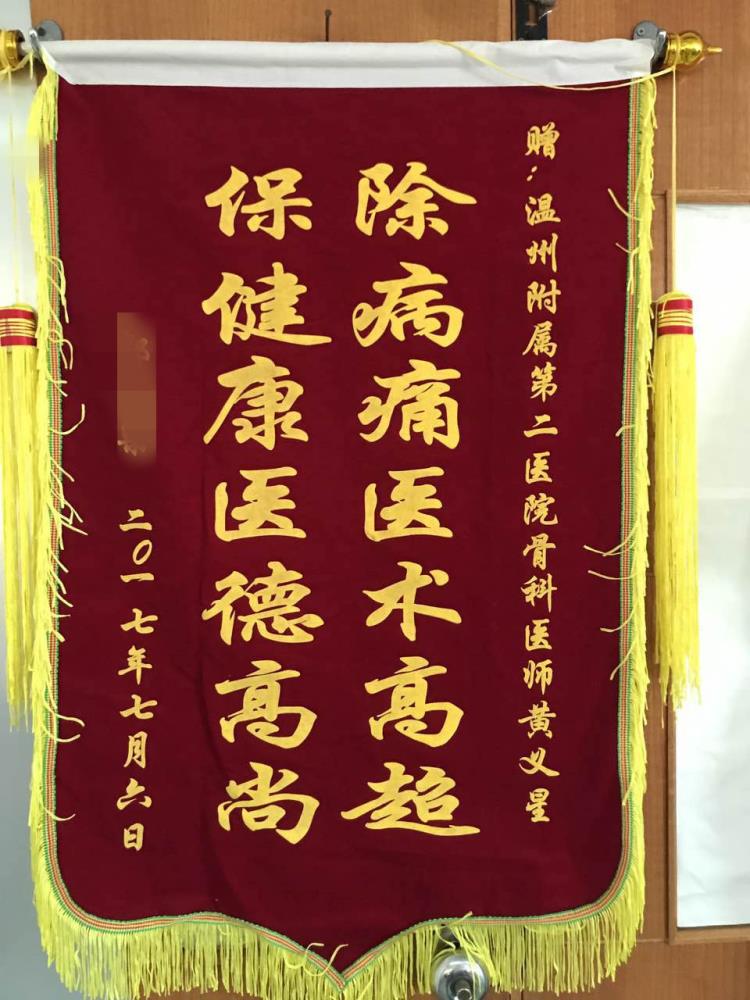 赠：温州附属第二医院骨科医师黄义星
除病痛医术高超
保健康医德高尚
二〇一七年七月六日